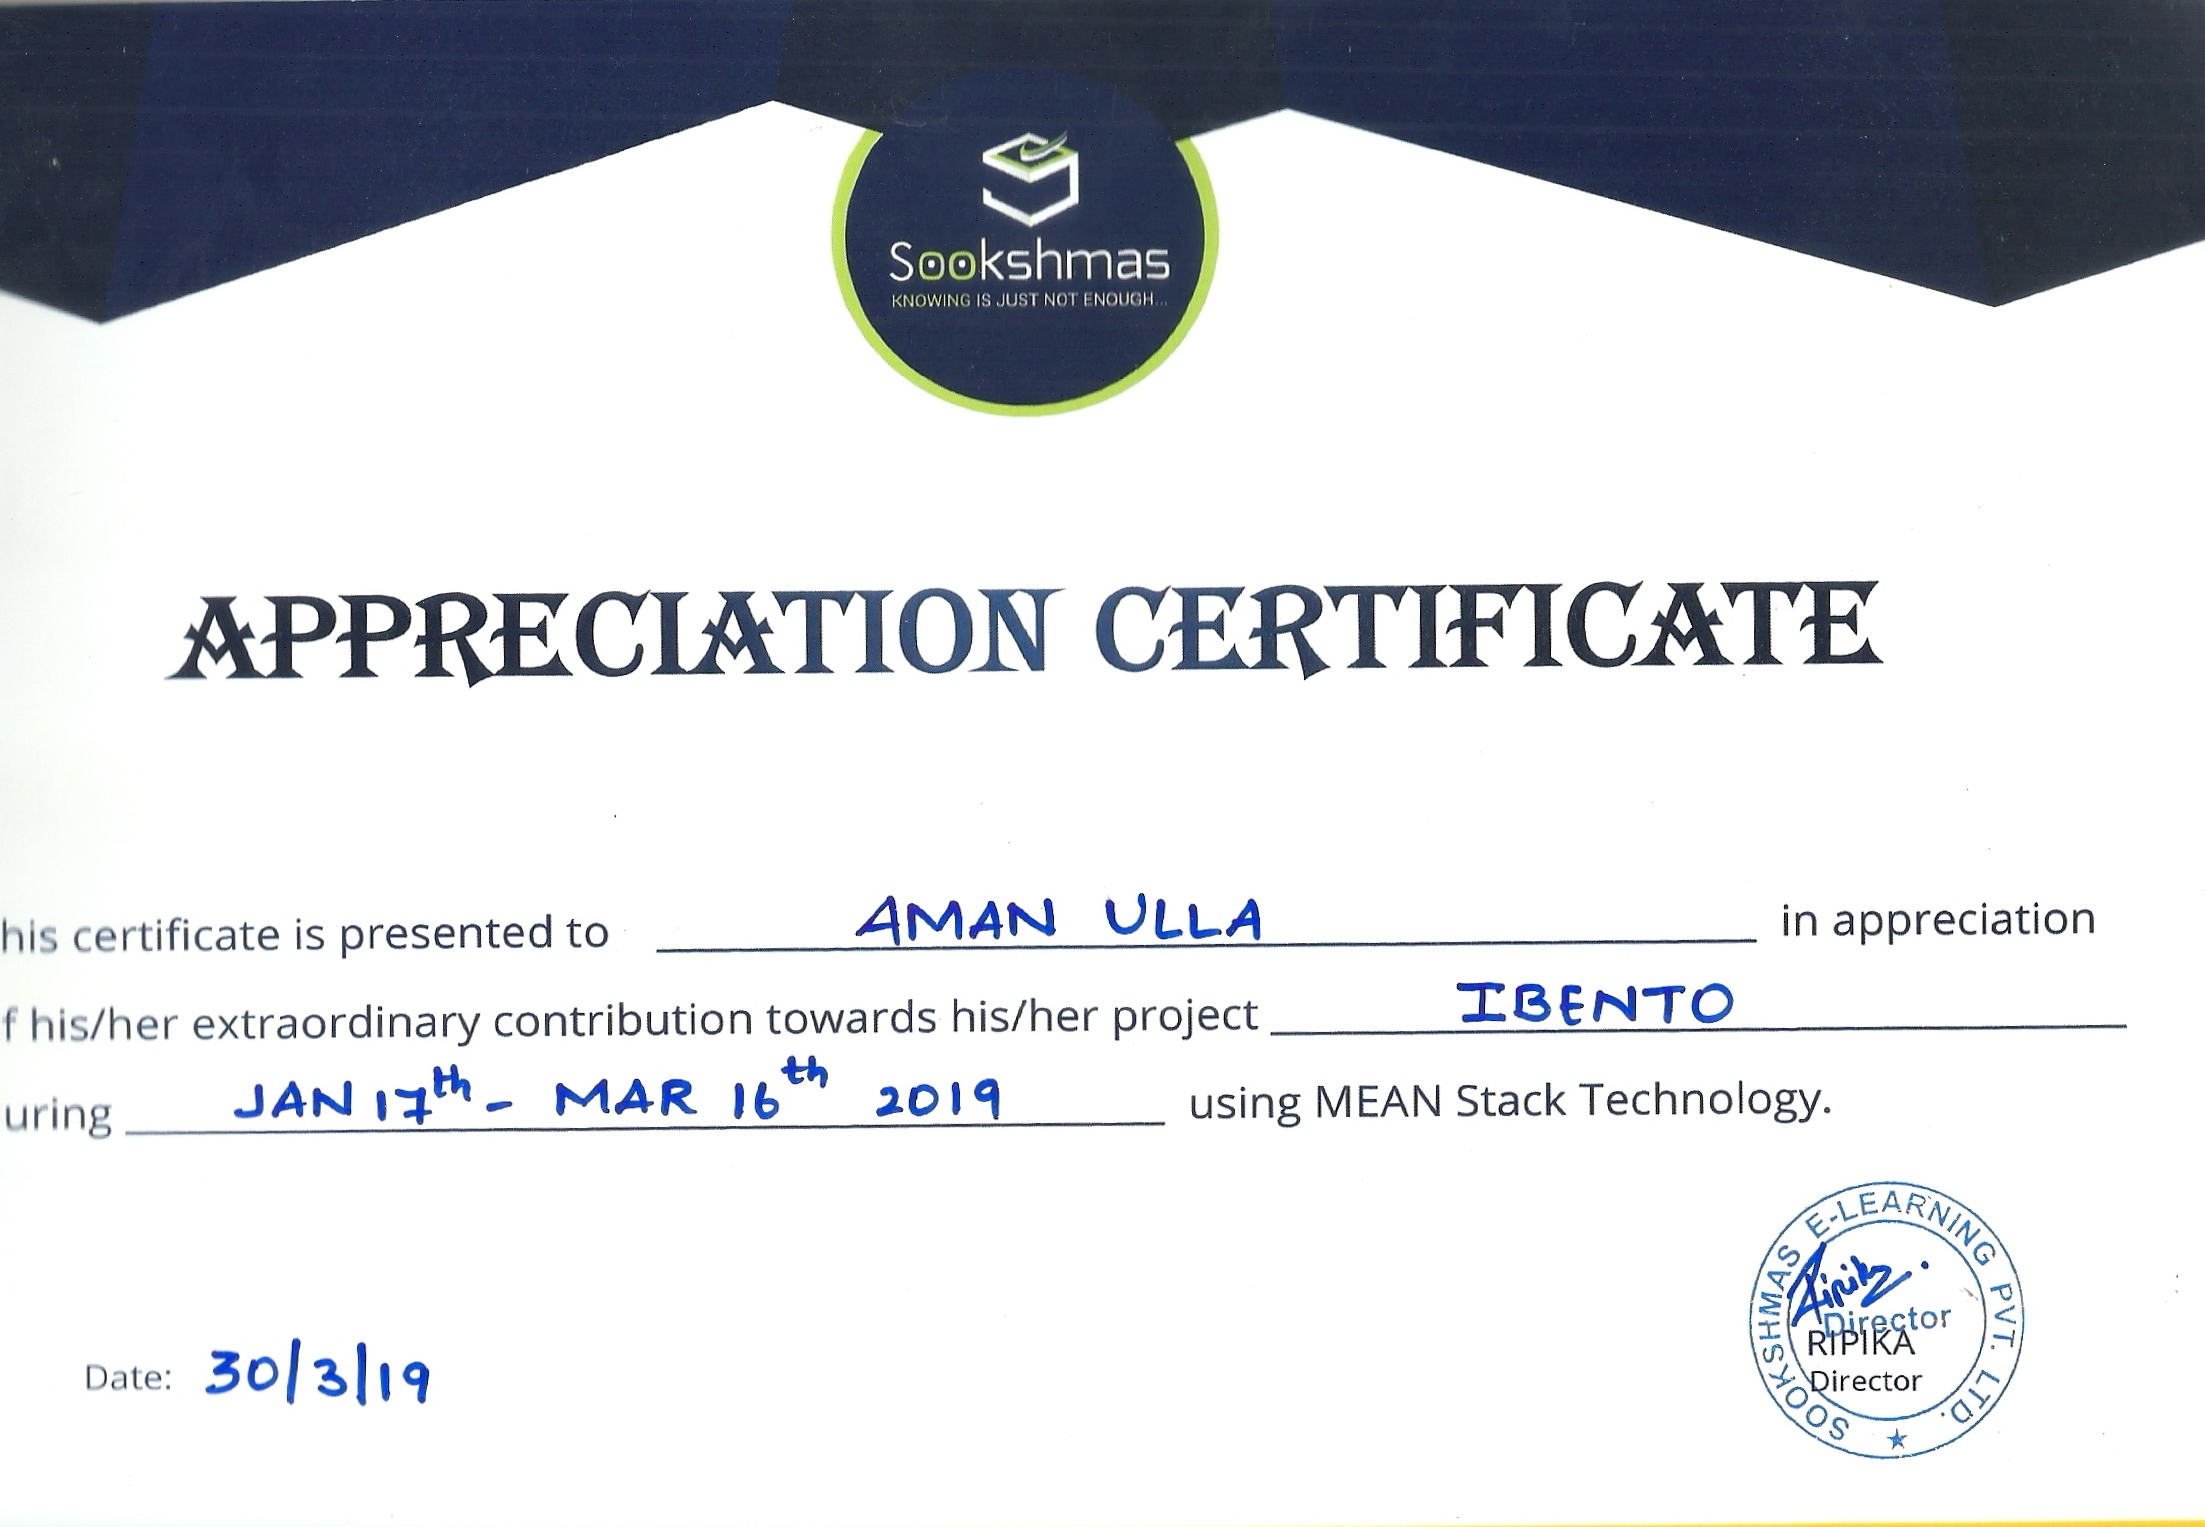 Sookshmas
KNOWING IS JUST NOT ENOUGH...
APPRECIATION CERTIFICATE
his certificate is presented to AMAN ULLA in appreciation
f his/her extraordinary contribution towards his/her project IBENTO
uring JAN 17th - MAR 16th 2019 using MEAN Stack Technology.
SOOKSHMAS E-LEARNING PVT. LTD.
Director
RIPIKA
Director
Date: 30/3/19